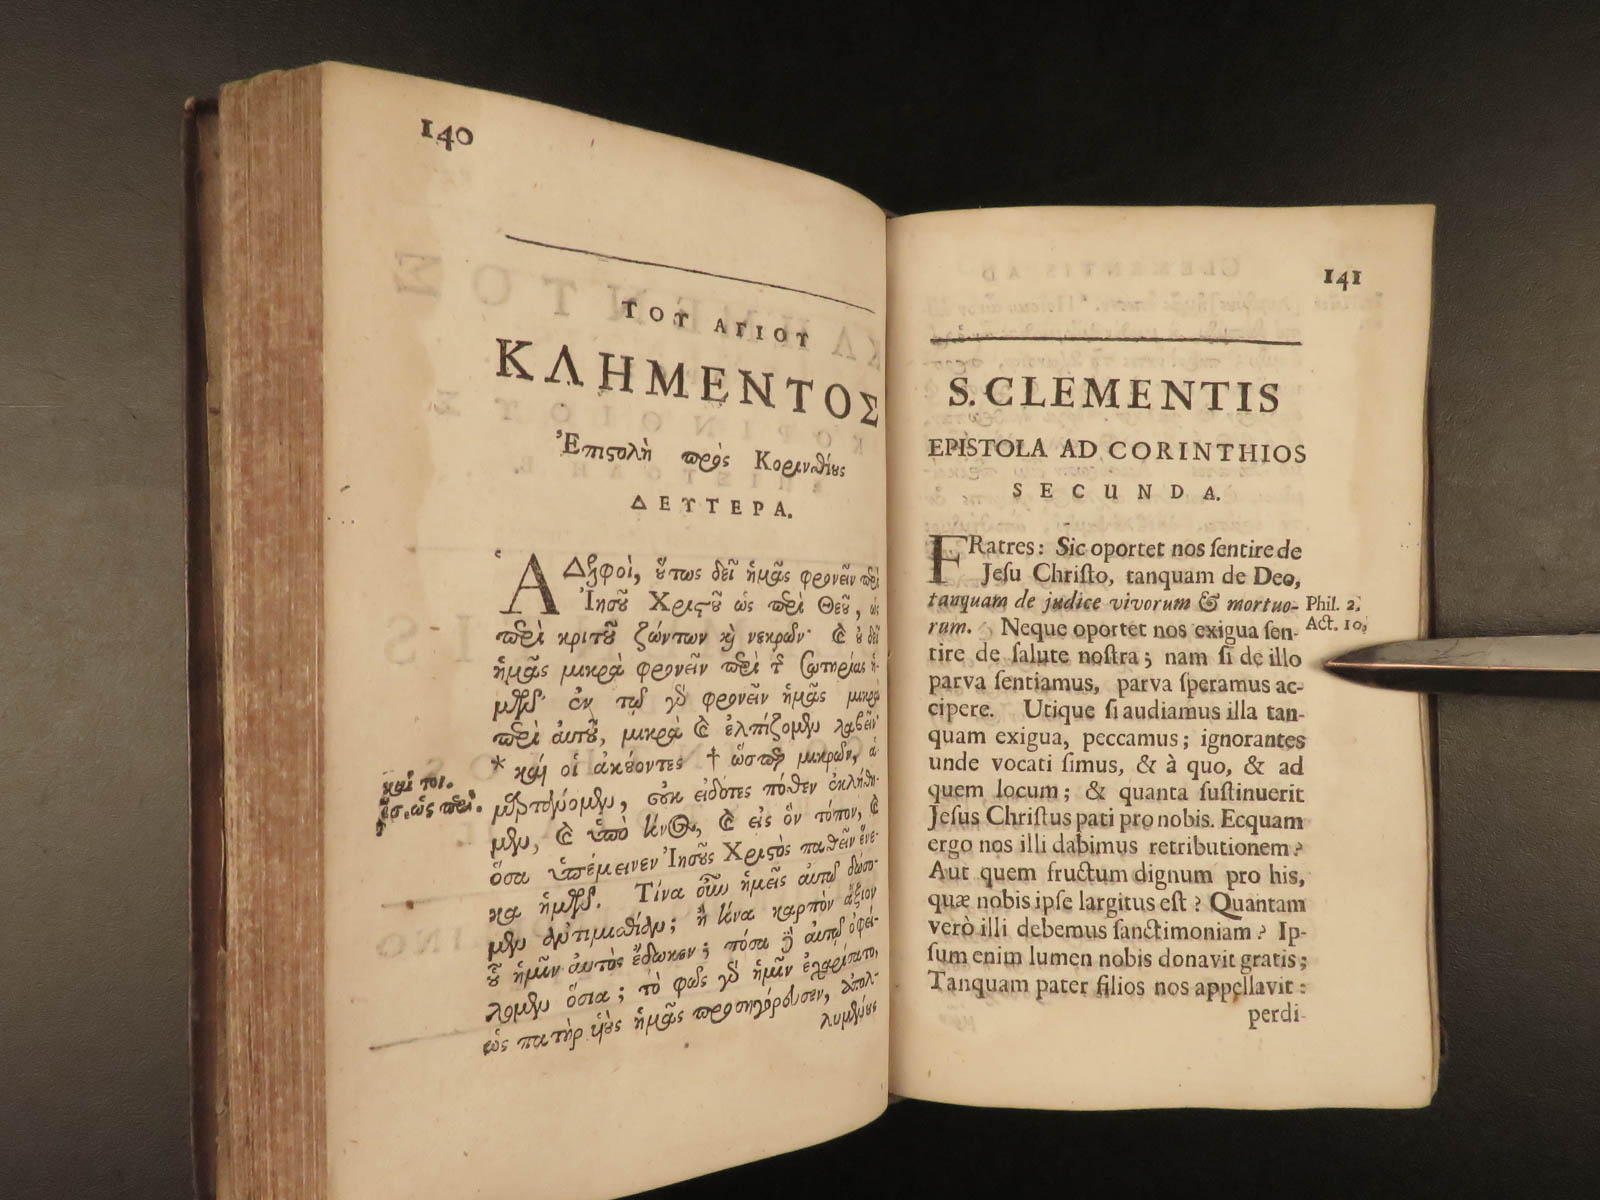 140
ΤΟΥ ΑΓΙΟΥ
ΚΛΗΜΕΝΤΟΣ
Ἐπιστολὴ πρὸς Κορινθίους
ΔΕΥΤΕΡΑ.
ἈΔελφοὶ, οὕτως δεῖ ἡμᾶς φρονεῖν περὶ
Ἰησοῦ Χριστοῦ ὡς περὶ Θεοῦ, ὡς
περὶ κριτοῦ ζώντων καὶ νεκρῶν· καὶ οὐ δεῖ
ἡμᾶς μικρὰ φρονεῖν περὶ τῆς σωτηρίας ἡ-
μῶν· ἐν τῷ γὰρ φρονεῖν ἡμᾶς μικρὰ
περὶ αὐτοῦ, μικρὰ καὶ ἐλπίζομεν λαβεῖν·
* καὶ οἱ ἀκούοντες † ὥσπερ μικρῶν, ἁ-
μαρτάνομεν, οὐκ εἰδότες πόθεν ἐκλήθη-
μεν, καὶ ὑπὸ τίνος, καὶ εἰς ὃν τόπον, καὶ
ὅσα ὑπέμεινεν Ἰησοῦς Χριστὸς παθεῖν ἕνε-
κα ἡμῶν. Τίνα οὖν ἡμεῖς αὐτῷ δώσο-
μεν ἀντιμισθίαν; ἢ τίνα καρπὸν ἄξιον
οὗ ἡμῖν αὐτὸς ἔδωκεν; πόσα δὲ αὐτῷ ὀφεί-
λομεν ὅσια; τὸ φῶς γὰρ ἡμῖν ἐχαρίσατο,
ὡς πατὴρ υἱοὺς ἡμᾶς προσηγόρευσεν, ἀπολ-
λυμένους
καί τοι.
ἴσ. ὡς περὶ.
141
S. CLEMENTIS
EPISTOLA AD CORINTHIOS
SECUNDA.
FRatres: Sic oportet nos sentire de
Jesu Christo, tanquam de Deo,
tanquam de judice vivorum & mortuo-
rum. Neque oportet nos exigua sen-
tire de salute nostra; nam si de illo
parva sentiamus, parva speramus ac-
cipere. Utique si audiamus illa tan-
quam exigua, peccamus; ignorantes
unde vocati simus, & à quo, & ad
quem locum; & quanta sustinuerit
Jesus Christus pati pro nobis. Ecquam
ergo nos illi dabimus retributionem?
Aut quem fructum dignum pro his,
quæ nobis ipse largitus est? Quantam
verò illi debemus sanctimoniam? Ip-
sum enim lumen nobis donavit gratis;
Tanquam pater filios nos appellavit:
perdi-
Phil. 2.
Act. 10.